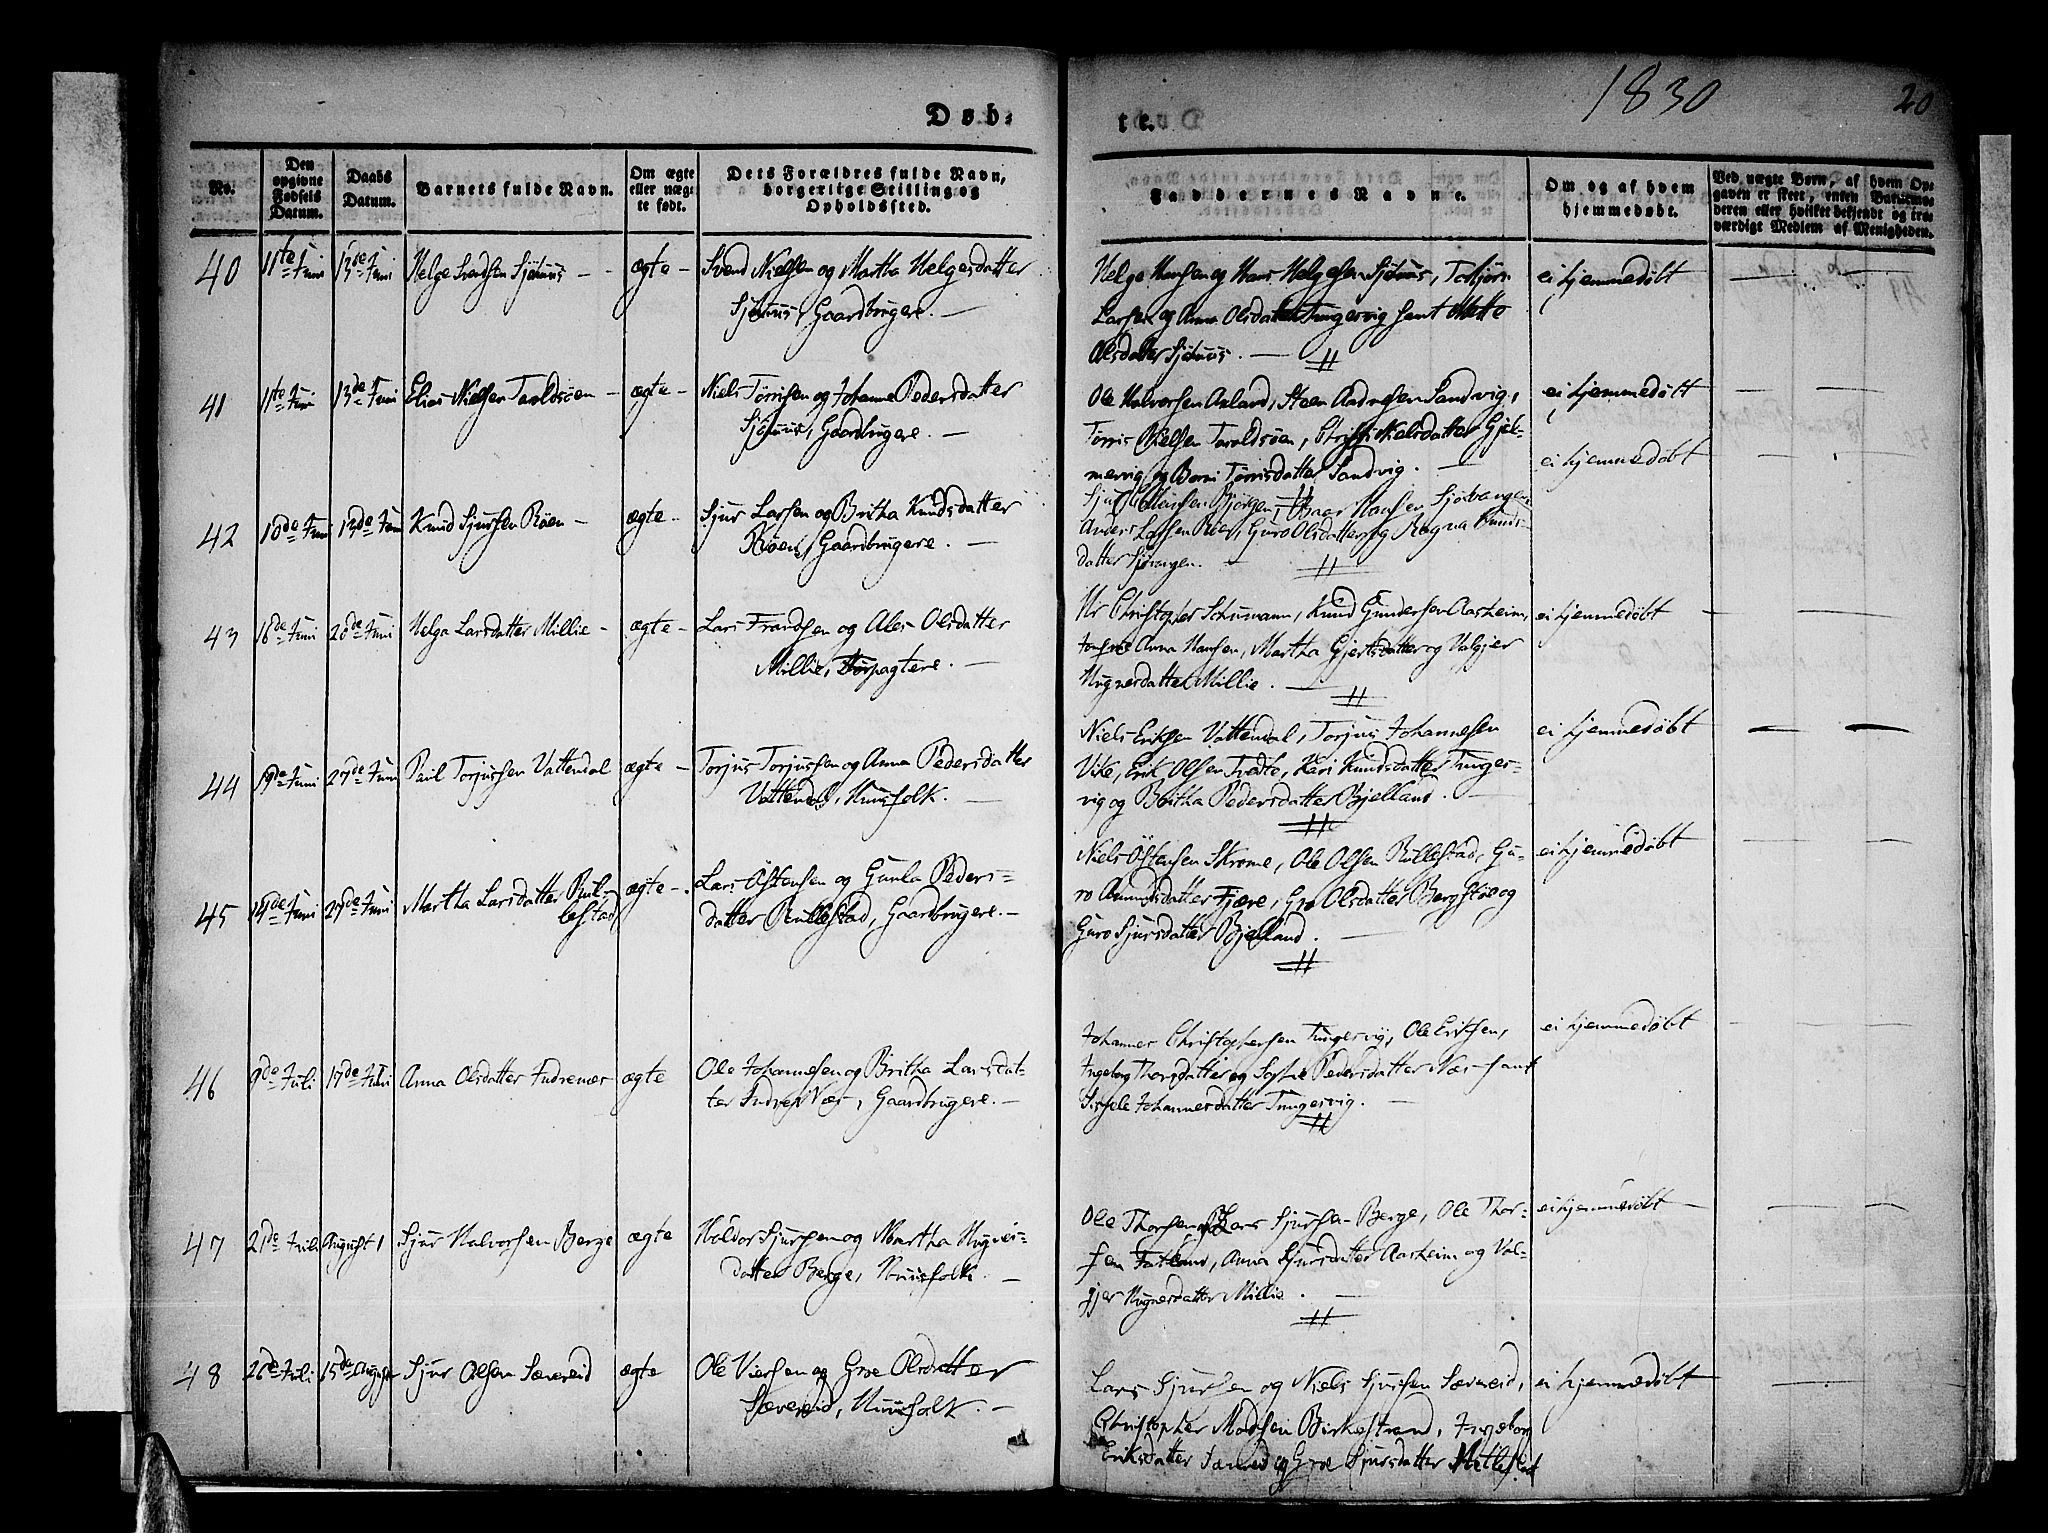 Døb-
te.
1830
20
No.
Den opgivne Fødsels Datum.
Daabs Datum.
Barnets fulde Navn.
Om ægte eller uægte født.
Dets Forældres fulde Navn, borgerlige Stilling og Opholdssted.
Faddernes Navne.
Om og af hvem hjemmedøbt.
Ved uægte Børn, af hvem Opgaven er skeet, enten Barnemoderen eller hvilket bekjendt og troværdigt Medlem af Menigheden.
40 11te Juni 13de Juni Helge Svendsen - - ægte - Svend Nielsen og Martha Helgesdatter
Gaardbrugere. -
Helge Hansen og Hans Helgesen Torbjørn ei hjemmedøbt
Larsen og Anna Olsdatter Tungesvig samt Mette
Olsdatter
41 11te Juni 13de Juni Elias Nielsen Taroldsøen - ægte - Niels Tørrisen og Johanne Pedersdatter
Gaardbrugere. -
Ole Halvorsen Aaland, Steen Aadnesen Sandvig, ei hjemmedøbt
Tørris Nielsen Taroldsøen, Nielsdatter Gjel-
mervig og Tørrisdatter Sandvig. -
42 10de Juni 13de Juni Knud Sjursen Røen - ægte - Sjur Larsen og Britha Knudsdatter
Røen, Gaardbrugere. -
ei hjemmedøbt
Sjur Hansen
Anders Larsen Guro Olsdatter og Ragna Knuds-
datter
43 16de Juni 20de Juni Helga Larsdatter Millie - ægte - Lars Frandsen og Ales Olsdatter
Millie, Forpagtere. -
Hr Christopher Schumann, Knud Gundersen Aasheim, ei hjemmedøbt
Jomfrue Anna Hansen, Martha Gjertsdatter og Valgjer
Hugnesdatter Millie. -
44 19de Juni 27de Juni Paul Torjussen Vattendal ægte - Torjus Torjussen og Anna Pedersdatter
Vattendal, Huusfolk. -
Niels Eriksen Vattendal, Torjus Johannesen ei hjemmedøbt
Vike, Erik Olsen Tvedte, Kari Knudsdatter Tunges-
vig og Britha Pedersdatter Bjelland. -
45 14de Juni 27de Juni Martha Larsdatter Rul-
lestad
ægte - Lars Östensen og Gunla Peders-
datter Rullestad, Gaardbrugere. -
Niels Östensen Skromme, Ole Olsen Rullestad, Gu- ei hjemmedøbt
ro Amundsdatter Fjære, Gro Olsdatter og
Guro Sjursdatter Bjelland. -
46 9de Juli 17de Juli Anna Olsdatter Indrenæs ægte Ole Johannesen og Britha Larsdat-
ter Indre Næs, Gaardbrugere. -
Johannes Christophersen Tungesvig, Ole Eriksen, ei hjemmedøbt
Ingeborg Thorsdatter og Sophie Pedersdatter Næs samt
Sissele Johannesdatter Tungesvig. -
47 21de Juli August 1 Sjur Halvorsen Berge ægte Halvor Sjursen og Martha Hugnes-
datter Berge, Huusfolk. -
Ole Thorsen og Lars Sjursen Berge, Ole Thor- ei hjemmedøbt -
sen Fatland, Anna Sjursdatter Aasheim og Val-
gjer Hugnesdatter Millie. -
48 26de Juli 15de August Sjur Olsen Sævereid ægte Ole Viersen og Groe Olsdatter
Sævereid, Huusfolk. -
Lars Sjursen og Niels Sjursen Sævereid, ei hjemmedøbt
Christopher Madsen Birkestrand, Ingeborg
Eriksdatter Sævereid og Groe Sjursdatter